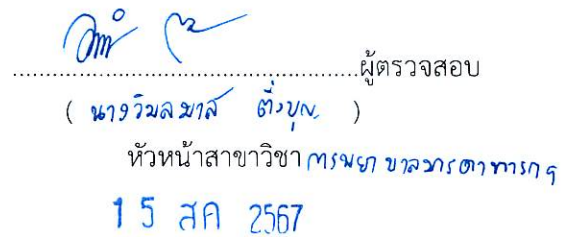 ....................................................ผู้ตรวจสอบ
( นางวิมลมาส ติ่งบุญ )
หัวหน้าสาขาวิชา การพยาบาลมารดาทารกฯ
15 สค 2567